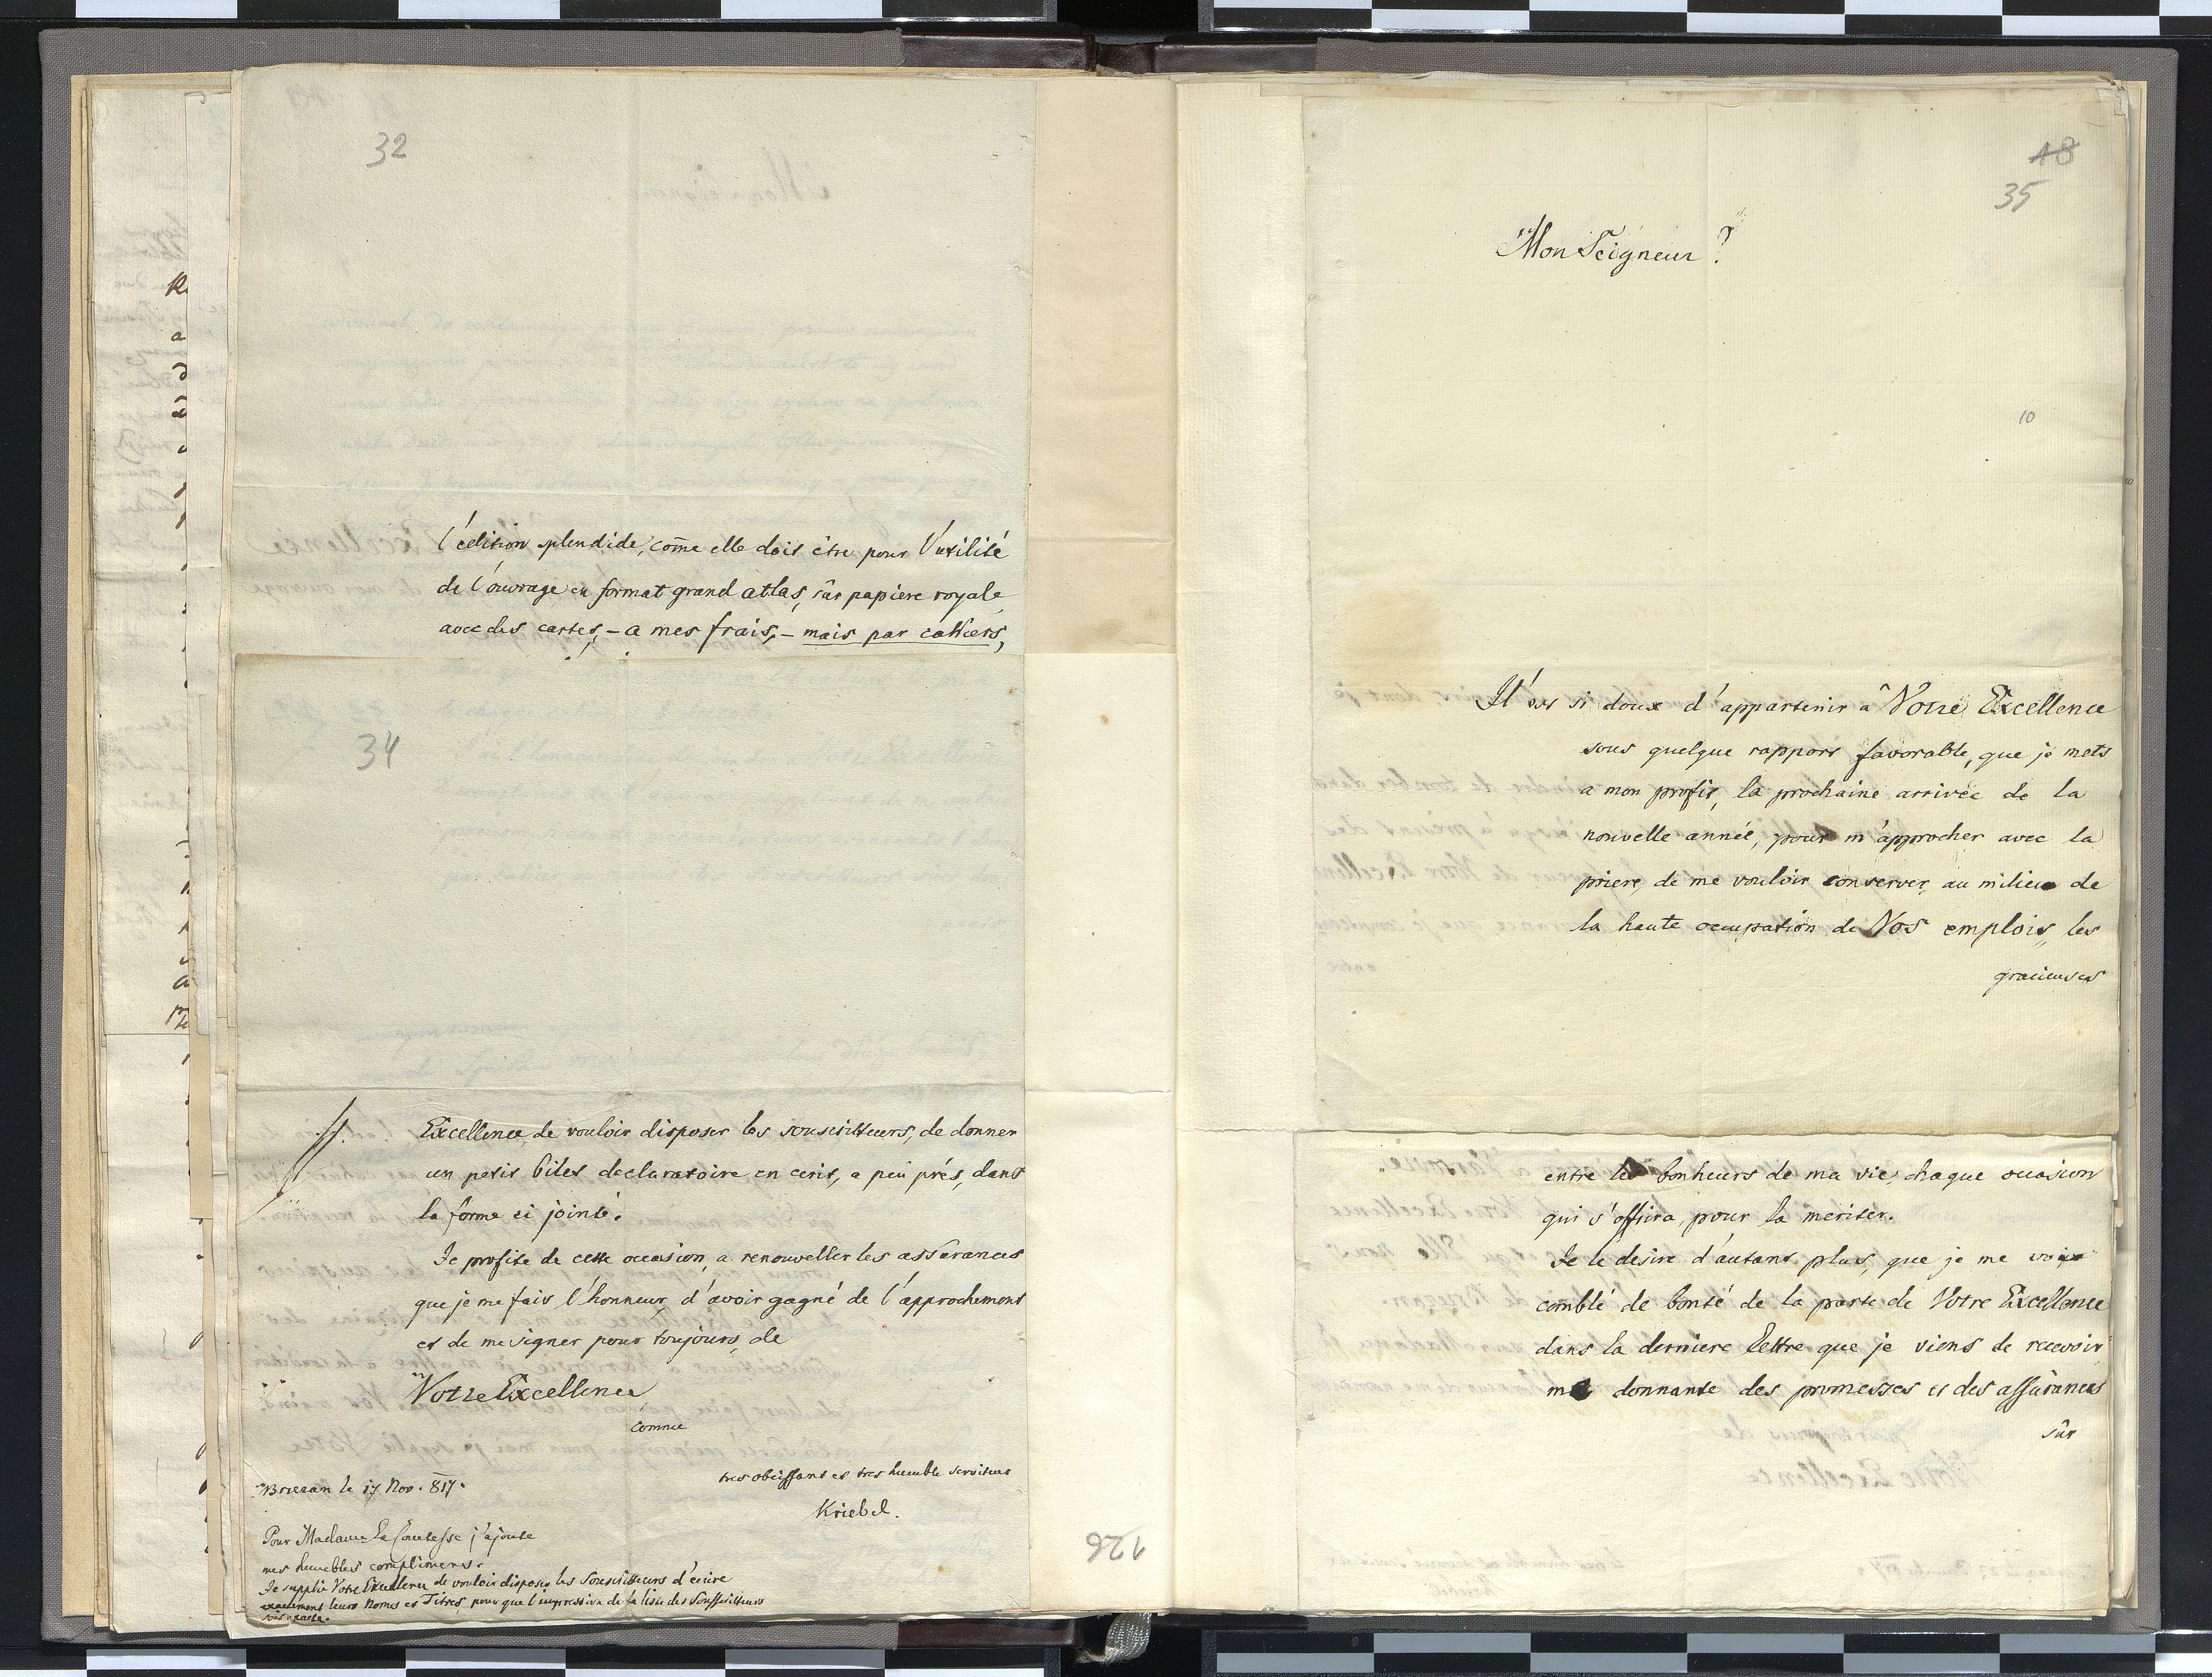 32
l'edition splendide, come elle dois être pour l'utilité
de l'ouvrage en format grand atlas, sûr papiere royale
avec des cartes, – a mes frais, – mais par cahiers,
34
Excellence de vouloir disposer les souscritteurs, de donner
un petit billet declaratoire en ecrit, a peu prés, dans
la forme ci jointé.
Je profite de cette occasion, a renouveller les assurances
que je me fais l'honneur, d'avoir gagné de l'approchement
et de me signer pour toujours, de
Votre Excellence
comme
tres obeissant et tres humble serviteur
Kriebel.
Brzezan le 17 Nov. 817.
Pour Madame La Comtesse j'ajoute
mes humbles complimens.
Je supplie Votre Excellence de vouloir disposer les Souscritteurs d'ecrire
exactement leurs Noms et Titres, pour que l'impression de la liste des Souscritteurs
soit exacte.
126
18
35
MonSeigneur?
10
Il est si doux d'appartenir â Votre Excellence
sous quelque rapport favorable, que je mets
a mon profit, la prochaine arrivée de la
nouvelle année, pour m'approcher avec la
priere, de me vouloir conserver, au milieu de
la haute ocupation de Vos emplois, les
gracieuses
entre les bonheurs de ma vie, chaque occasion
qui s'offrira, pour la meriter.
Je le desire d'autant plus, que je me vois
comblé de bonté de la parte de Votre Excellence
dans la derniere lettre que je viens de recevoir
me donnante des promesses et des assurances
sûr